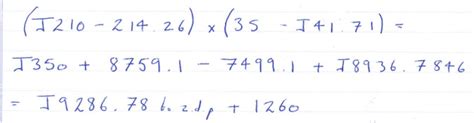 (J210 - 214.26) x (35 - J41.71) =
J350 + 8759.1 - 7499.1 + J8936.7846
= J9286.78 to 2dp + 1260